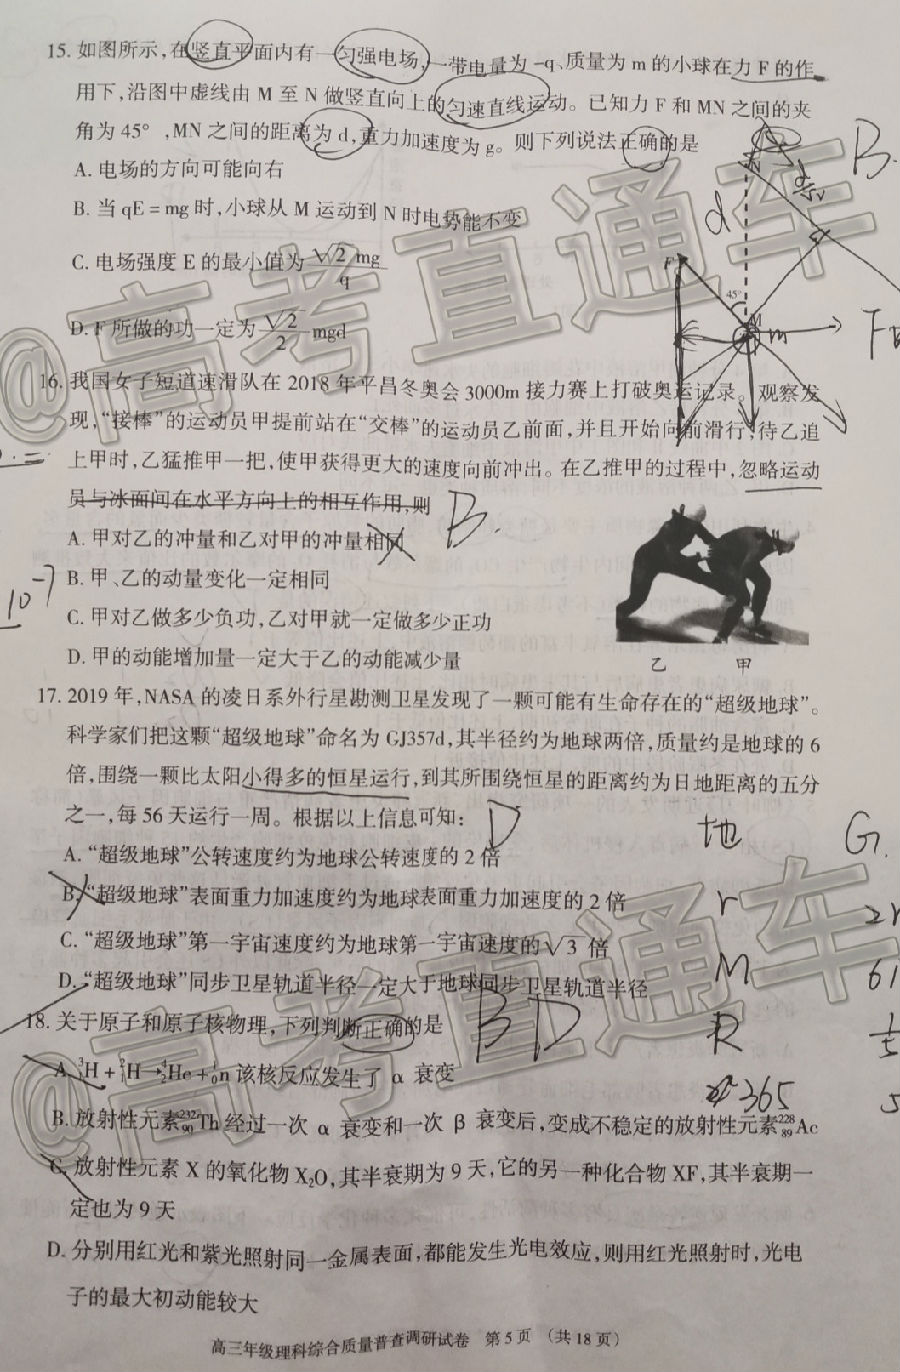 15. 如图所示,在竖直平面内有一匀强电场,一带电量为-q、质量为m的小球在力F的作
用下,沿图中虚线由M至N做竖直向上的匀速直线运动。已知力F和MN之间的夹
角为45°,MN之间的距离为d,重力加速度为g。则下列说法正确的是
B.
A. 电场的方向可能向右
B. 当qE=mg时,小球从M运动到N时电势能不变
C. 电场强度E的最小值为√2mg/q
D. F所做的功一定为√2/2 mgd
N
d
F
45°
M
m
16. 我国女子短道速滑队在2018年平昌冬奥会3000m接力赛上打破奥运记录。观察发
现,“接棒”的运动员甲提前站在“交棒”的运动员乙前面,并且开始向前滑行,待乙追
上甲时,乙猛推甲一把,使甲获得更大的速度向前冲出。在乙推甲的过程中,忽略运动
员与冰面间在水平方向上的相互作用,则
B.
A. 甲对乙的冲量和乙对甲的冲量相同
B. 甲、乙的动量变化一定相同
10⁻⁷
C. 甲对乙做多少负功,乙对甲就一定做多少正功
D. 甲的动能增加量一定大于乙的动能减少量
乙 甲
17. 2019年,NASA的凌日系外行星勘测卫星发现了一颗可能有生命存在的“超级地球”。
科学家们把这颗“超级地球”命名为GJ357d,其半径约为地球两倍,质量约是地球的6
倍,围绕一颗比太阳小得多的恒星运行,到其所围绕恒星的距离约为日地距离的五分
之一,每56天运行一周。根据以上信息可知:
D
地 G
A. “超级地球”公转速度约为地球公转速度的2倍
B. “超级地球”表面重力加速度约为地球表面重力加速度的2倍
r 2r
C. “超级地球”第一宇宙速度约为地球第一宇宙速度的√3倍
M
D. “超级地球”同步卫星轨道半径一定大于地球同步卫星轨道半径
18. 关于原子和原子核物理,下列判断正确的是
BD
R
A. ³₁H+²₁H→⁴₂He+¹₀n该核反应发生了α衰变
365
B. 放射性元素²³²₉₀Th经过一次α衰变和一次β衰变后,变成不稳定的放射性元素²²⁸₈₉Ac
C. 放射性元素X的氧化物X₂O,其半衰期为9天,它的另一种化合物XF,其半衰期一
定也为9天
D. 分别用红光和紫光照射同一金属表面,都能发生光电效应,则用红光照射时,光电
子的最大初动能较大
高三年级理科综合质量普查调研试卷 第5页 (共18页)
@高考直通车
@高考直通车